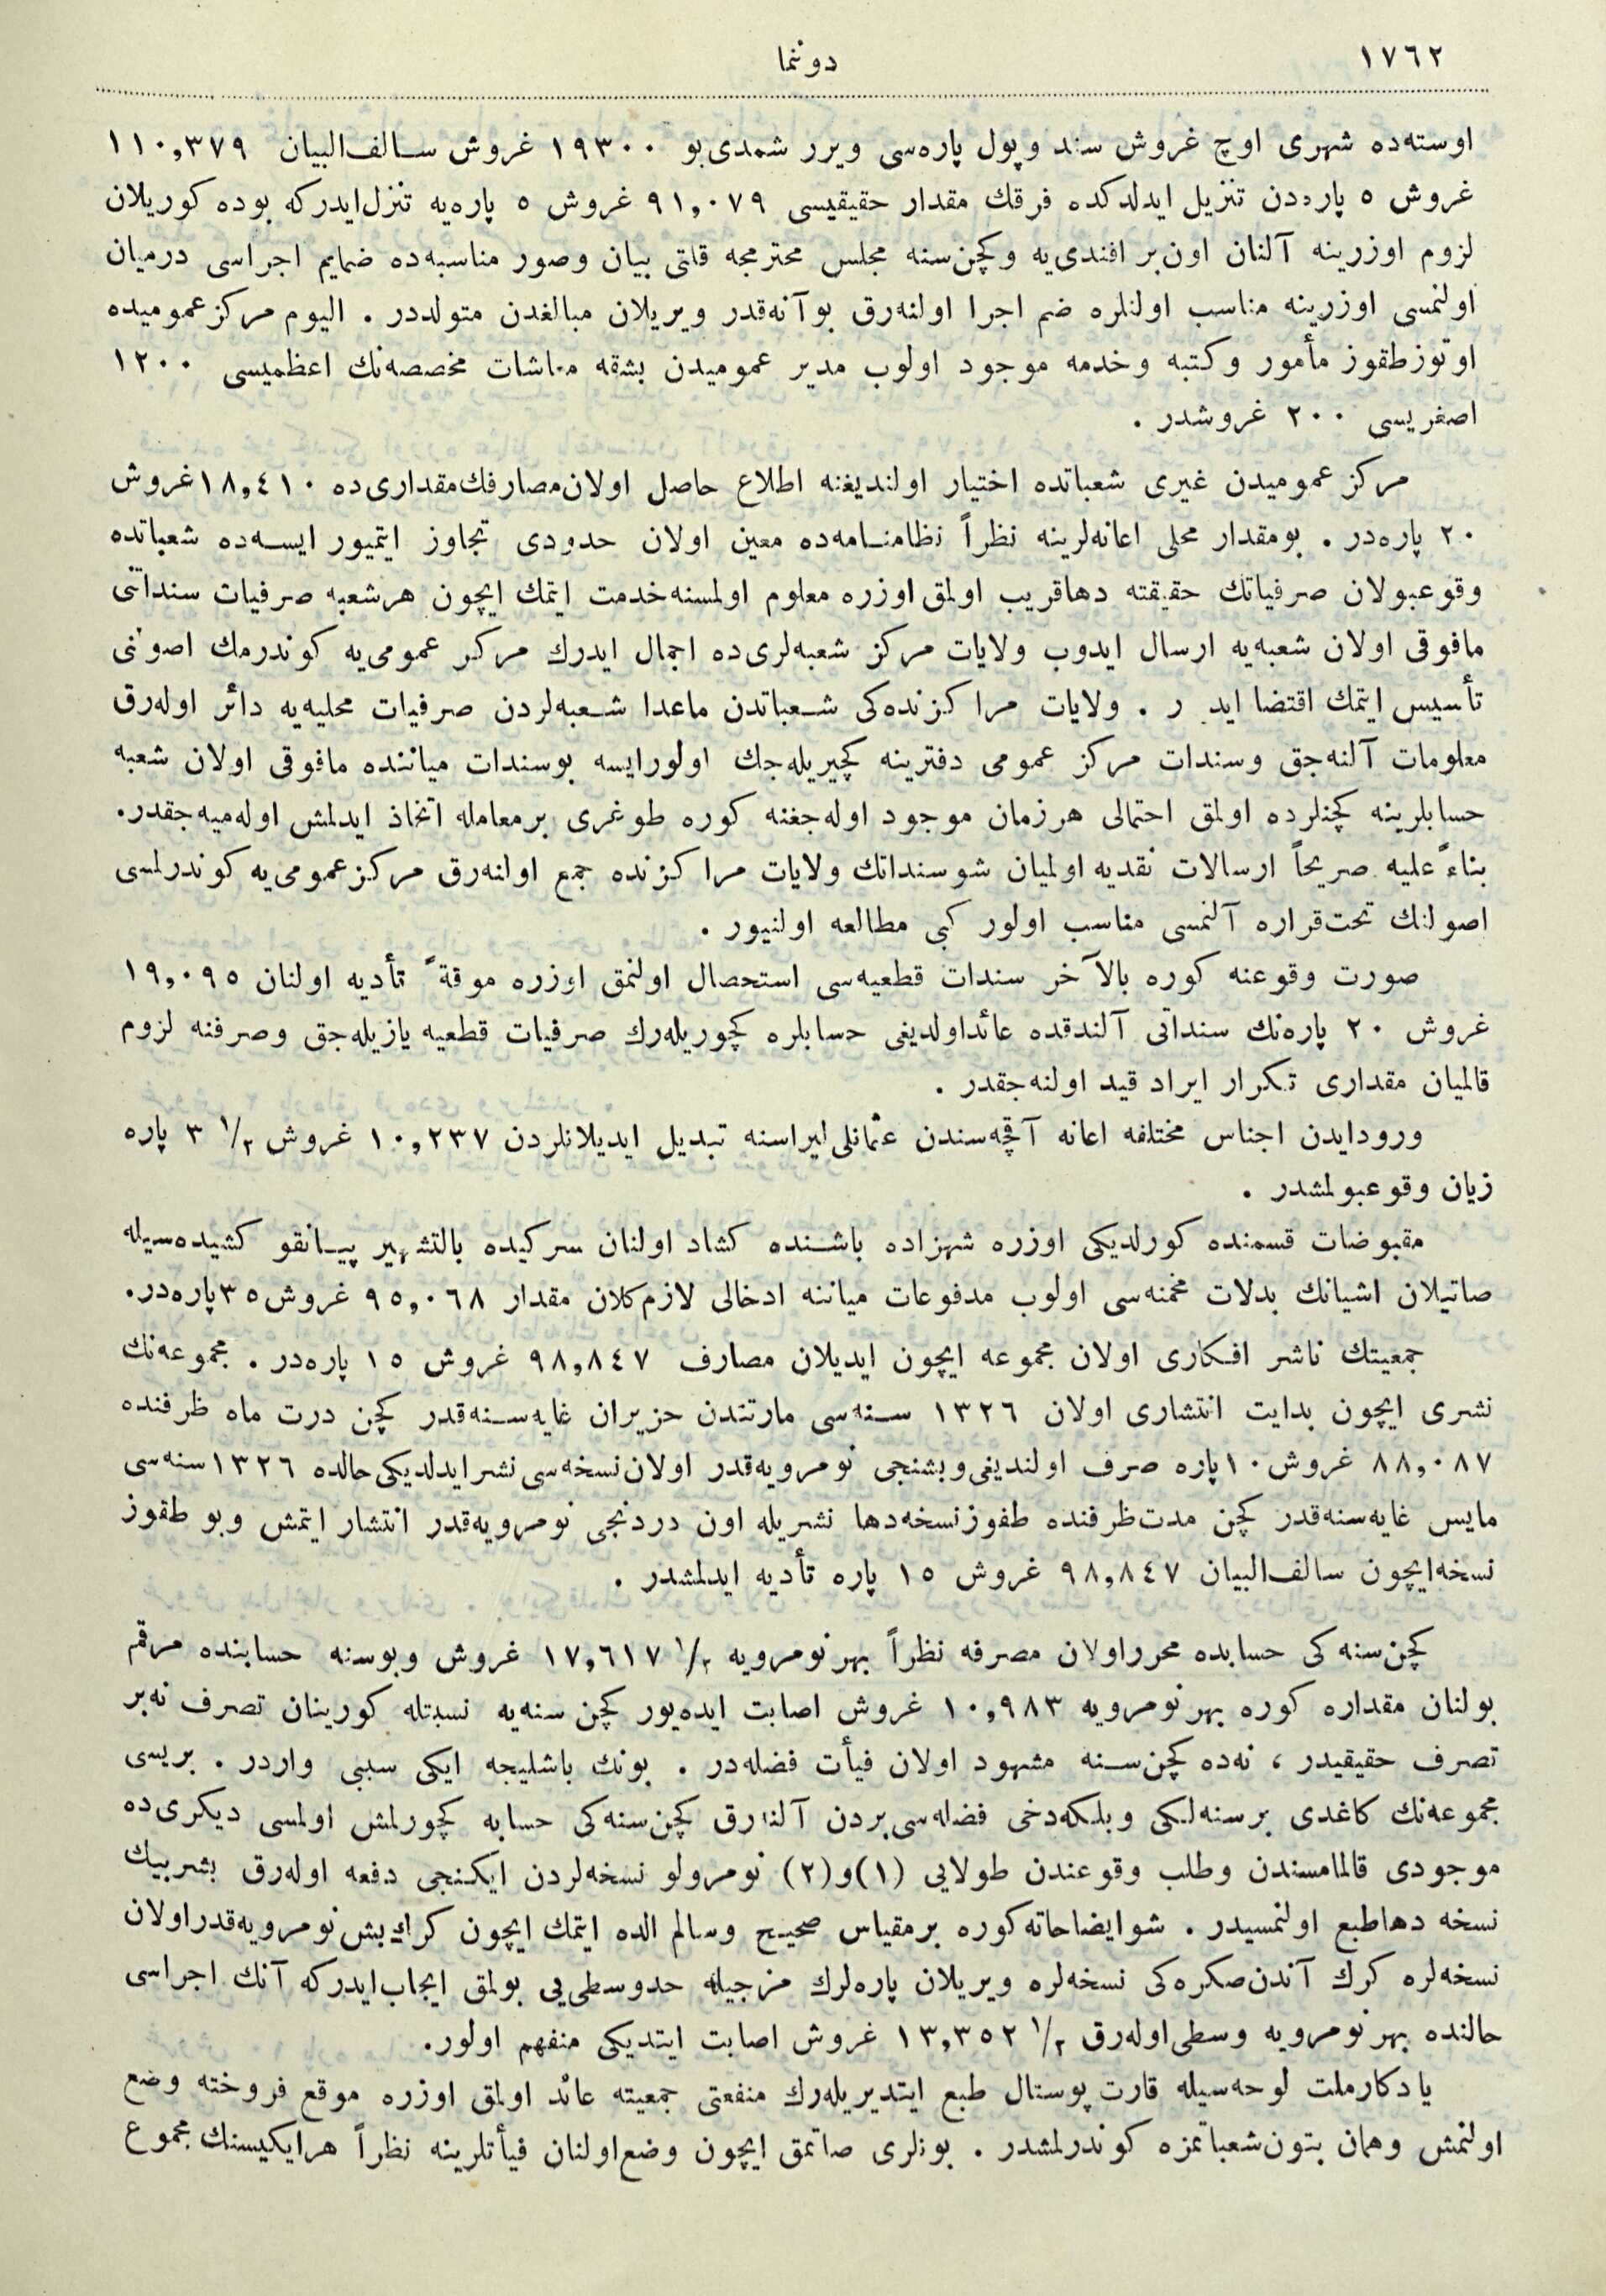 ١٧٦٢
دونما
اوسته‌ده شهری اوچ غروش سند وپول پاره‌سی ویرر شمدی‌بو ١٩٣٠٠ غروش سالف‌البیان ١١٠,٣٧٩
غروش ٥ پاره‌دن تنزیل ایدلدکده فرقك مقدار حقیقیسی ٩١,٠٧٩ غروش ٥ پاره‌یه تنزل‌ایدرکه بوده کوریلان
لزوم اوزرینه آلنان اون‌بر افندی‌یه وکچن‌سنه مجلس محترمجه قلتی بیان وصور مناسبه‌ده ضمایم اجراسی درمیان
اولنمسی اوزرینه مناسب اولنلره ضم اجرا اولنه‌رق بوآنه‌قدر ویریلان مبالغدن متولددر . الیوم مرکزعمومیده
اوتوزطقوز مأمور وکتبه وخدمه موجود اولوب مدیر عمومیدن بشقه معاشات مخصصه‌نك اعظمیسی ١٢٠٠
اصغریسی ٢٠٠ غروشدر .
مرکز عمومیدن غیری شعباتده اختیار اولندیغنه اطلاع حاصل اولان‌مصارفك‌مقداری‌ده ١٨,٤١٠غروش
٢٠ پاره‌در . بومقدار محلی اعانه‌لرینه نظراً نظامنامه‌ده معین اولان حدودی تجاوز ایتمیور ایسه‌ده شعباتده
وقوعبولان صرفیاتك حقیقته دهاقریب اولمق اوزره معلوم اولمسنه‌خدمت ایتمك ایچون هرشعبه صرفیات سنداتنی
مافوقی اولان شعبه‌یه ارسال ایدوب ولایات مرکز شعبه‌لری‌ده اجمال ایدرك مرکز عمومی‌یه کوندرمك اصولنی
تأسیس ایتمك اقتضا اید ر . ولایات مراکزنده‌کی شعباتدن ماعدا شعبه‌لردن صرفیات محلیه‌یه دائر اوله‌رق
معلومات آلنه‌جق وسندات مرکز عمومی دفترینه کچیریله‌جك اولورایسه بوسندات میاننده مافوقی اولان شعبه
حسابلرینه کچنلرده اولمق احتمالی هرزمان موجود اوله‌جغنه کوره طوغری برمعامله اتخاذ ایدلمش اوله‌میه‌جقدر.
بناءً علیه صریحاً ارسالات نقدیه اولمیان شوسنداتك ولایات مراکزنده جمع اولنه‌رق مرکزعمومی‌یه کوندرلمسی
اصولنك تحت‌قراره آلنمسی مناسب اولور کبی مطالعه اولنیور .
صورت وقوعنه کوره بالآخر سندات قطعیه‌سی استحصال اولنمق اوزره موقةً تأدیه اولنان ١٩,٠٩٥
غروش ٢٠ پاره‌نك سنداتی آلندقده عائداولدیغی حسابلره کچوریله‌رك صرفیات قطعیه یازیله‌جق وصرفنه لزوم
قالمیان مقداری تکرار ایراد قید اولنه‌جقدر .
ورودایدن اجناس مختلفه اعانه آقچه‌سندن عثمانلی‌لیراسنه تبدیل ایدیلانلردن ١٠,٢٣٧ غروش ١/٢ ٣ پاره
زیان وقوعبولمشدر .
مقبوضات قسمنده کورلدیکی اوزره شهزاده باشنده کشاد اولنان سرکیده بالتشهیر پیانقو کشیده‌سیله
صاتیلان اشیانك بدلات مخمنه‌سی اولوب مدفوعات میاننه ادخالی لازم‌کلان مقدار ٩٥,٠٦٨ غروش٣٥پاره‌در.
جمعیتك ناشر افکاری اولان مجموعه ایچون ایدیلان مصارف ٩٨,٨٤٧ غروش ١٥ پاره‌در . مجموعه‌نك
نشری ایچون بدایت انتشاری اولان ١٣٢٦ سنه‌سی مارتندن حزیران غایه‌سنه‌قدر کچن درت ماه ظرفنده
٨٨,٠٨٧ غروش١٠پاره صرف اولندیغی‌وبشنجی نومرویه‌قدر اولان‌نسخه‌سی‌نشرایدلدیکی‌حالده ١٣٢٦سنه‌سی
مایس غایه‌سنه‌قدر کچن مدت‌ظرفنده طقوزنسخه‌دها نشریله اون دردنجی نومرویه‌قدر انتشار ایتمش وبو طقوز
نسخه‌ایچون سالف‌البیان ٩٨,٨٤٧ غروش ١٥ پاره تأدیه ایدلمشدر .
کچن‌سنه کی حسابده محرراولان مصرفه نظراً بهرنومرویه ١/٢ ١٧,٦١٧ غروش وبوسنه حسابنده مرقم
بولنان مقداره کوره بهرنومرویه ١٠,٩٨٣ غروش اصابت ایده‌یور کچن سنه‌یه نسبتله کورینان تصرف نه‌بر
تصرف حقیقیدر ، نه‌ده کچن‌سنه مشهود اولان فیأت فضله‌در . بونك باشلیجه ایکی سببی واردر . بریسی
مجموعه‌نك کاغدی برسنه‌لکی وبلکه‌دخی فضله‌سی‌بردن آلنه‌رق کچن‌سنه‌کی حسابه کچورلمش اولمسی دیکری‌ده
موجودی قالمامسندن وطلب وقوعندن طولایی (١)و(٢) نومرولو نسخه‌لردن ایکنجی دفعه اوله‌رق بشربیك
نسخه دهاطبع اولنمسیدر . شوایضاحاته‌کوره برمقیاس صحیح وسالم الده ایتمك ایچون کرك‌بش‌نومرویه‌قدراولان
نسخه‌لره کرك آندن‌صکره‌کی نسخه‌لره ویریلان پاره‌لرك مزجیله حدوسطی‌یی بولمق ایجاب‌ایدرکه آنك اجراسی
حالنده بهرنومرویه وسطی‌اوله‌رق ١/٢ ١٣,٣٥٢ غروش اصابت ایتدیکی منفهم اولور.
یادکارملت لوحه‌سیله قارت‌پوستال طبع ایتدیریله‌رك منفعتی جمعیته عائد اولمق اوزره موقع فروخته وضع
اولنمش وهمان بتون‌شعباتمزه کوندرلمشدر . بونلری صاتمق ایچون وضع‌اولنان فیأتلرینه نظراً هرایکیسنك مجموع